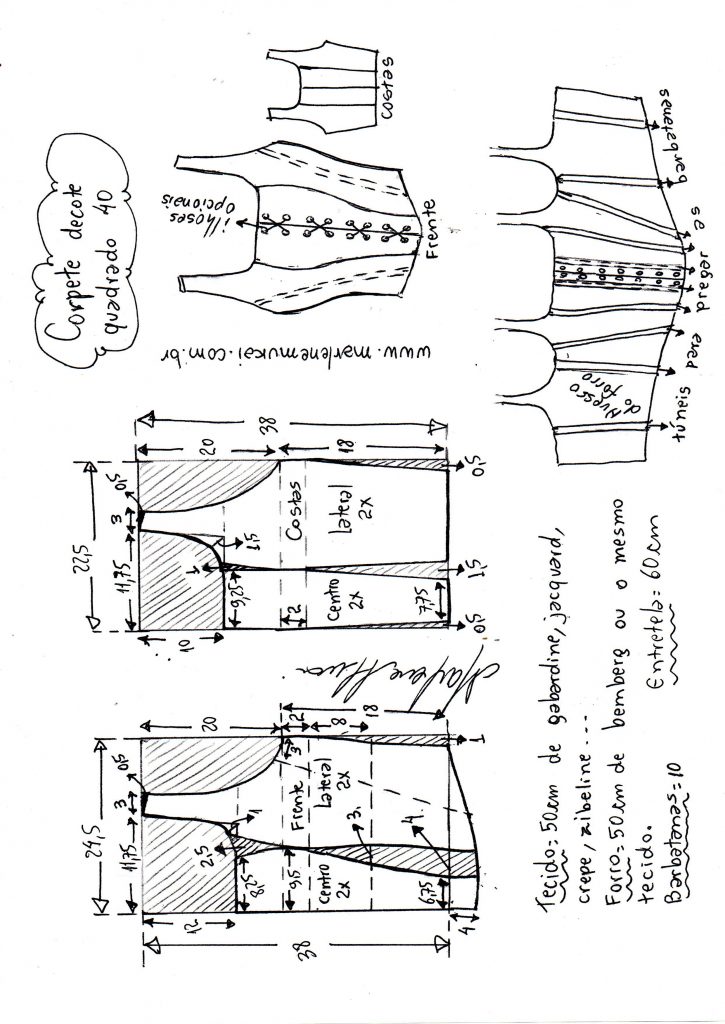 Corpete decote
quadrado 40
ilhoses
opcionais
Frente
costas
www.marlenemukai.com.br
avesso
do forro
túneis para pregar as barbatanas
24,5
11,75
3
0,5
20
12
38
2,5
1
8,25
9,5
3
2
8
18
Frente
Lateral
2x
centro
2x
3.
4.
6,75
4
1
22,5
11,75
3
0,5
20
38
10
1
1,5
9,25
2
Costas
Lateral
2x
centro
2x
18
7,75
0,5
1,5
0,5
Tecido=50cm de gabardine, jacquard,
crepe, zibeline...
Forro=50cm de bemberg ou o mesmo
tecido.
Entretela=60cm
Barbatanas=10